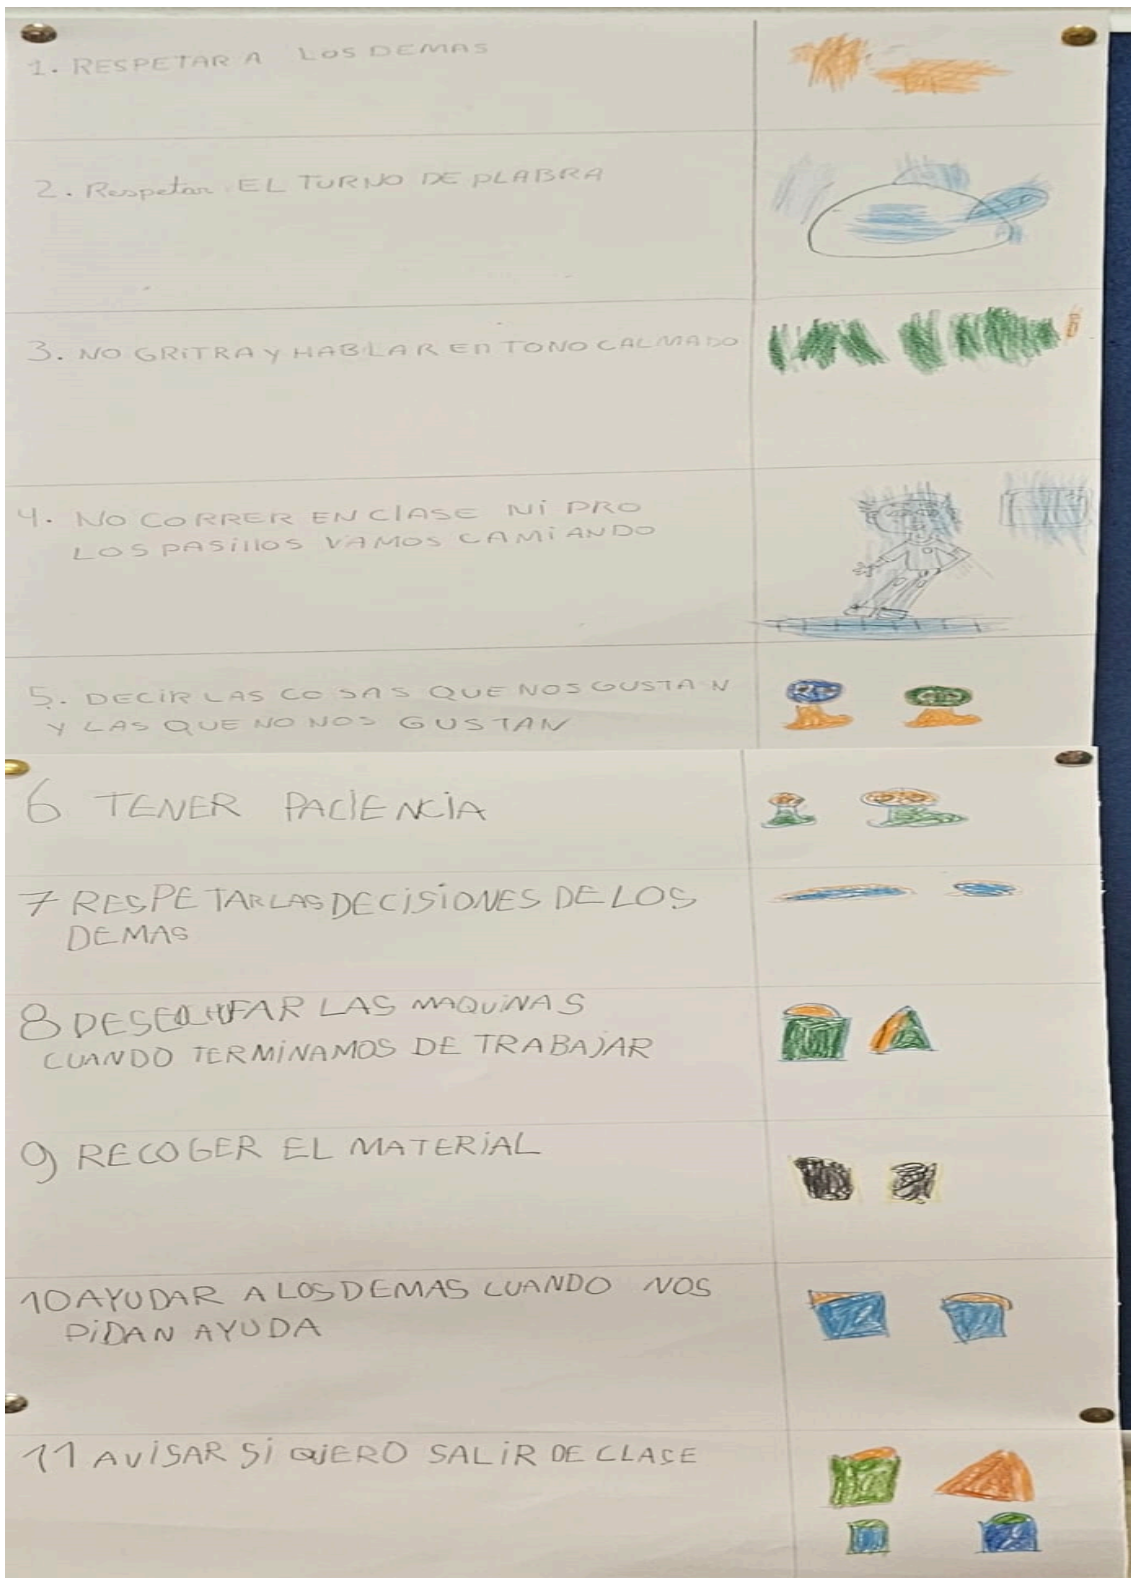 1. RESPETAR A LOS DEMAS
2. Respetar EL TURNO DE PLABRA
3. NO GRITRA Y HABLAR EN TONO CALMADO
4. NO CORRER EN ClASE Ni PRO
LOS PASillOS VAMOS CAMiANDO
5. DECiR LAS COSAS QUE NOS GUSTAN
Y LAS QUE NO NOS GUSTAN
6 TENER PACiENCiA
7 RESPETAR LAS DECiSiONES DE LOS
DEMAS
8 LAS MAQUiNAS
CUANDO TERMiNAMOS DE TRABAJAR
9) RECOGER EL MATERiAL
10 AYUDAR A LOS DEMAS CUANDO NOS
PiDAN AYUDA
11 AViSAR Si QiERO SALiR DE CLASE